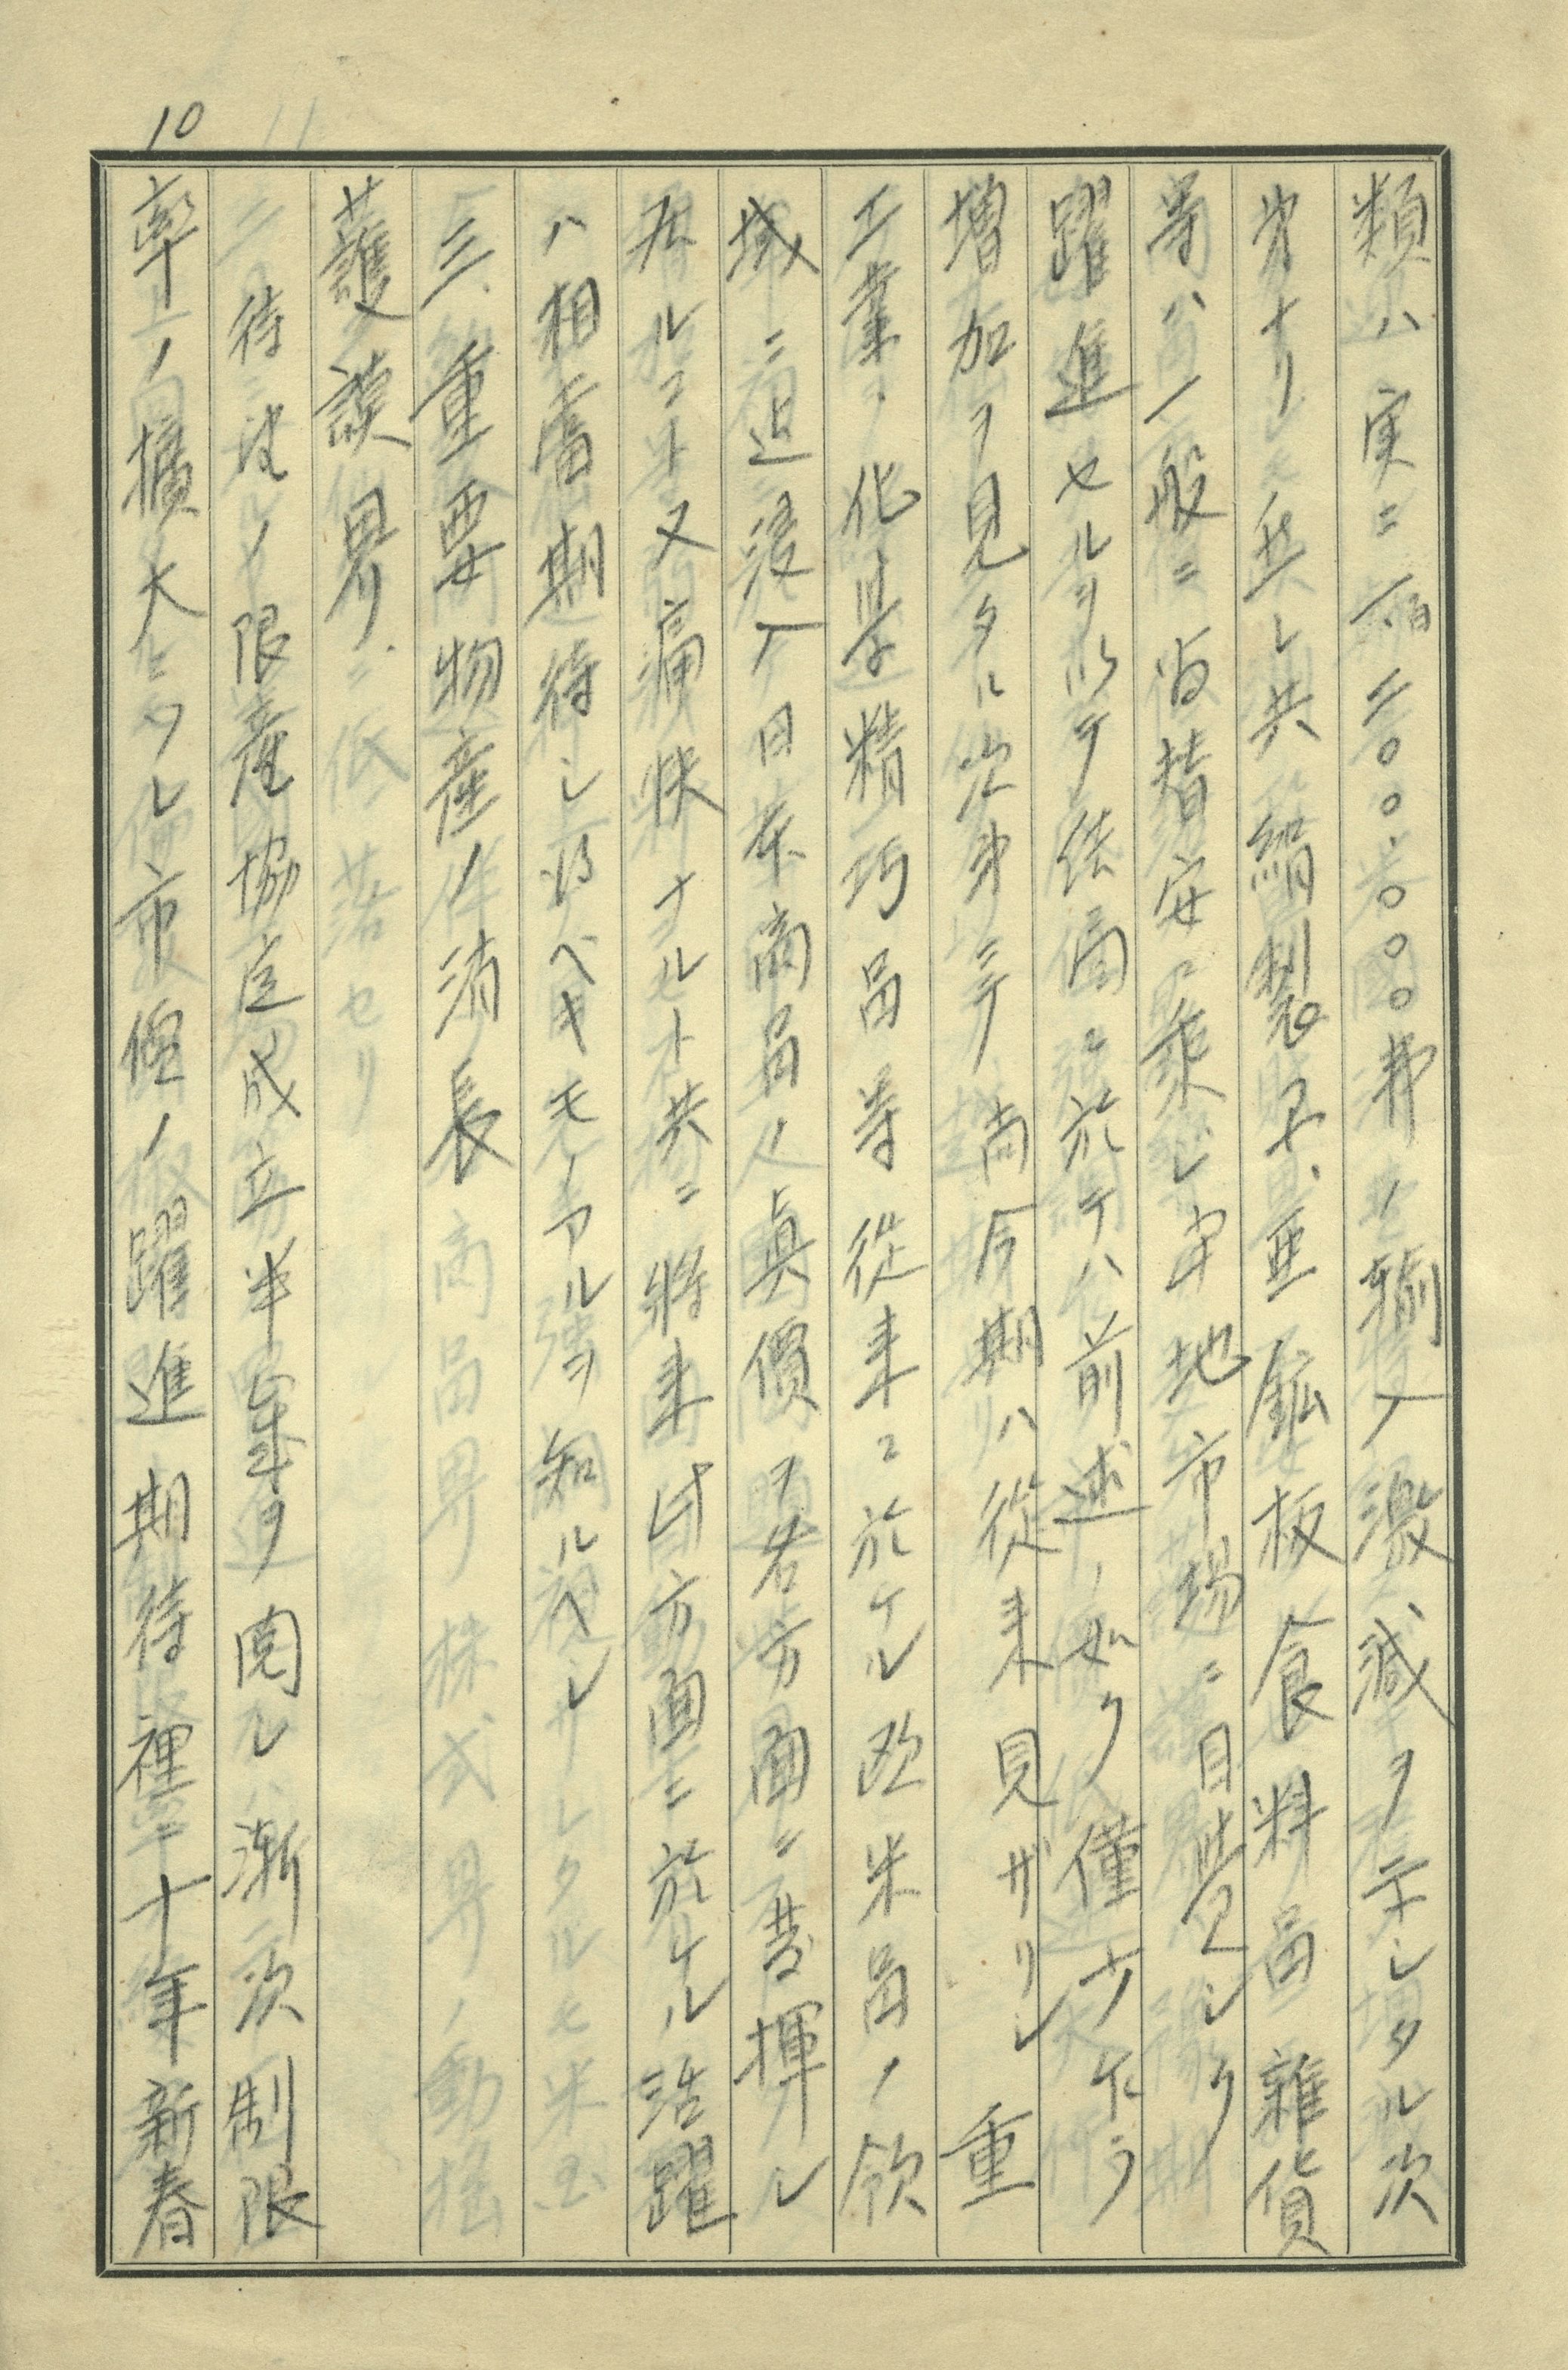 10
類ハ実ニ一百二〇〇.〇〇〇弗ノ輸入激減ヲ示シタル次
第ナリ然レ共絹製品、亜鉛板食料品雑貨
等ハ一般ニ為替安ニ乗ジ当地市場ニ目覚シク
躍進セルヲ以テ結局ニ於テハ前述ノ如ク僅少ナカラ
増加ヲ見タル次第ニテ尚今期ハ従来見ザリシ重
工業、化学精巧品等従来ニ於ケル欧米品ノ領
域ニ迫浸入日本商品ノ真價ヲ各方面ニ発揮シ
居ルコト又痛快ナルト共ニ将来此方面ニ於ケル活躍
ハ相当期待シ得ベキモノアルヲ知ルヘシ
三、重要物産ノ消長
護謨界
待望ノ限産協定成立半年ヲ閲シ漸次制限
率ノ拡大ニツレ市価ノ躍進期待裡ニ十年新春